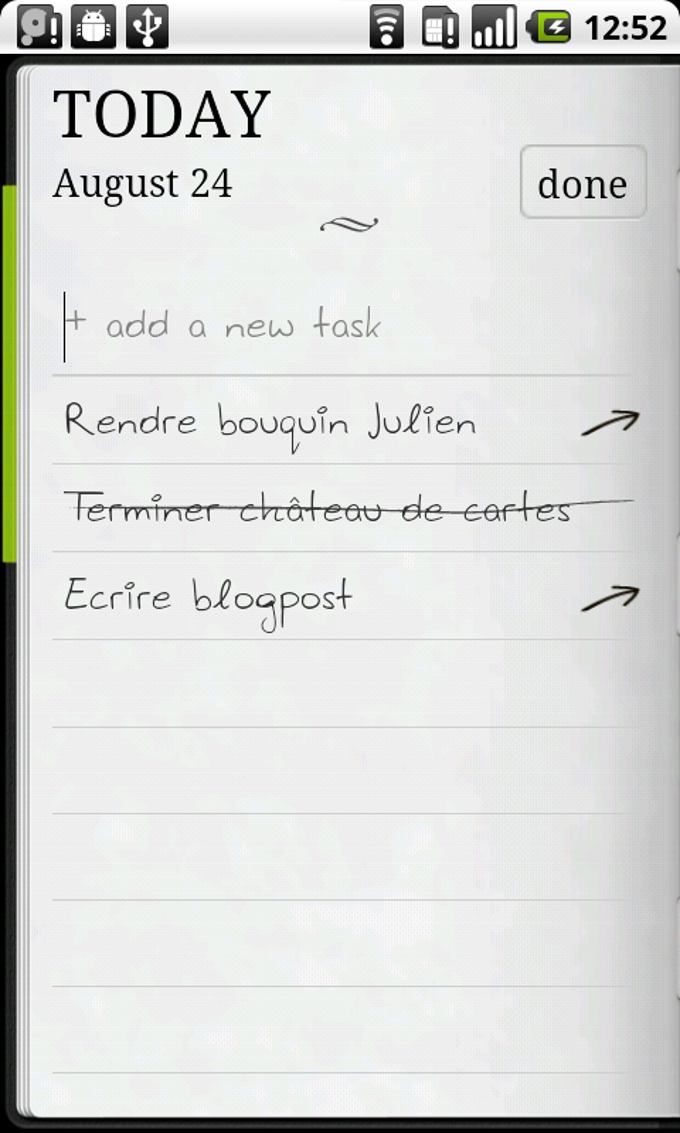 12:52
TODAY
August 24
done
+ add a new task
Rendre bouquin Julien
Terminer château de cartes
Ecrire blogpost